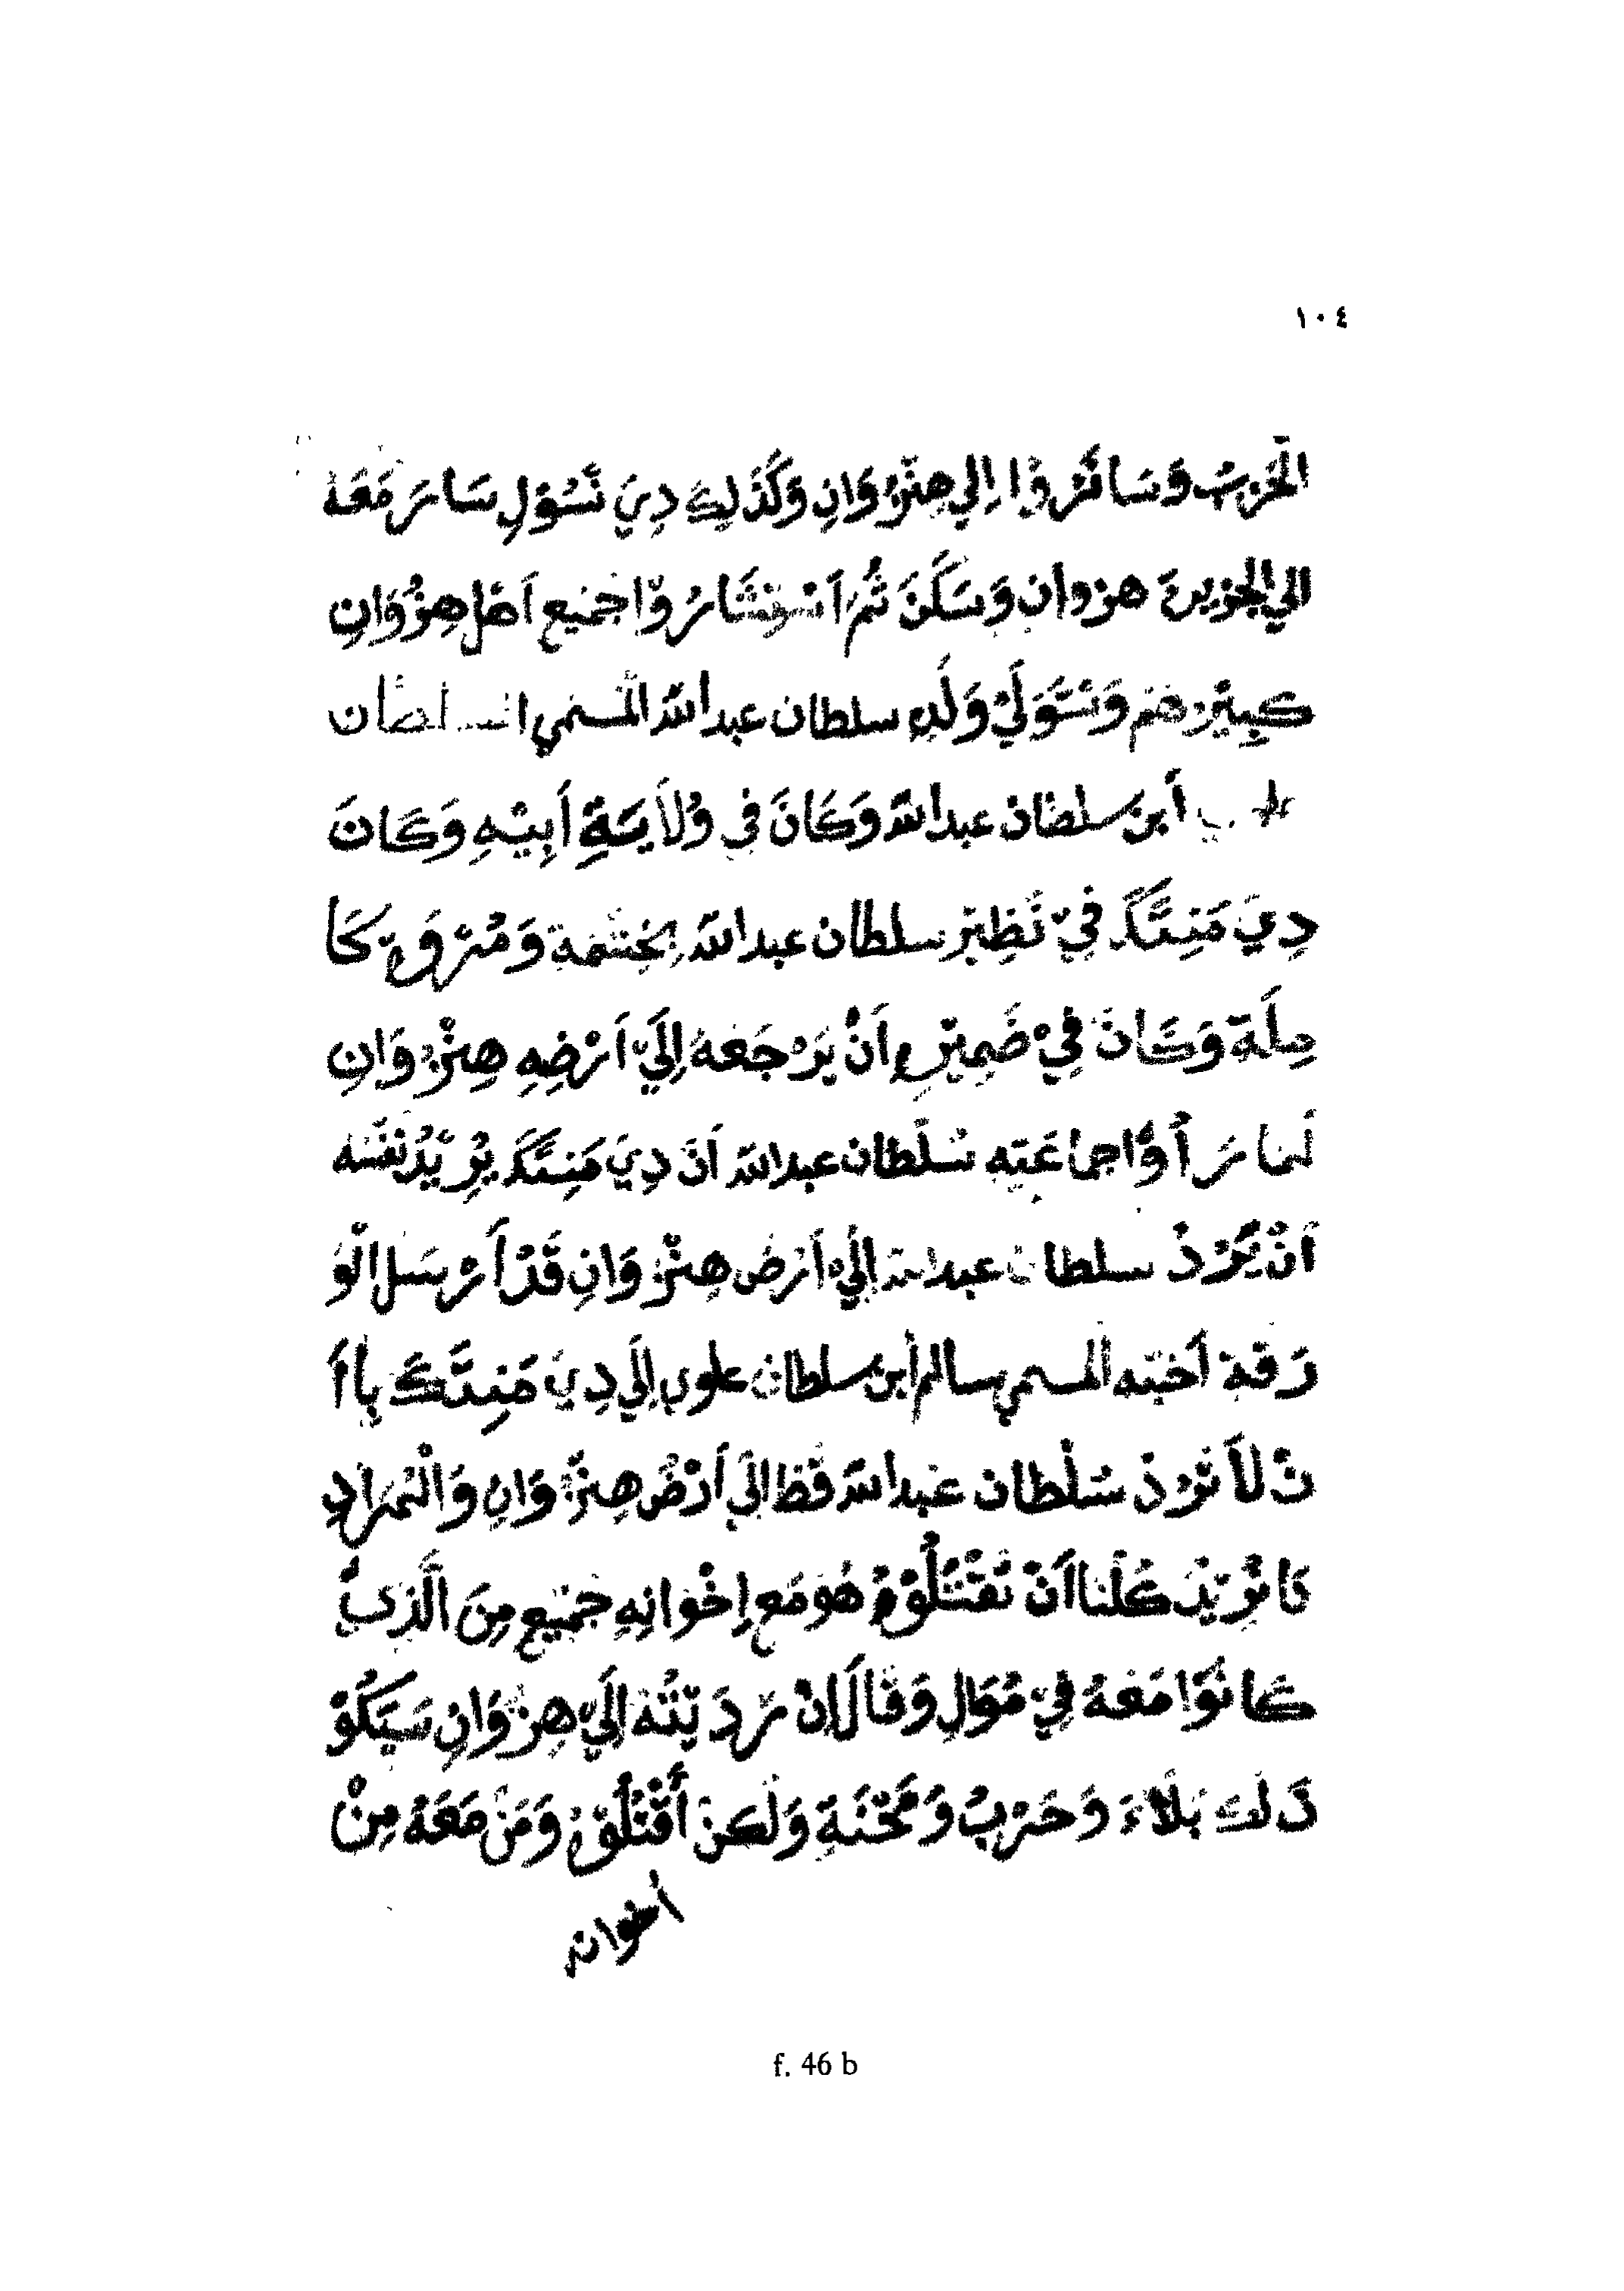 ١٠٤
الْحَرْبُ وَسَافَرُوْا اِلي هِنْزُوَانِ وَكَذَلِكَ دِيَ نَسُوْلِ سَارَ مَعَهُ
الي الجزيرة هنزوان وَسَكَنَ ثُمَّ اَسْتَشَارُوْا جَمِيْع اَهْل هِنْزُوَانِ
كبيْرهُمْ وَتَوَلَيْ وَلَدِهِ سلطان عبد الله المُسَمي السلطان
أبن سلطان عبد الله وَكَانَ فِي وُلاَيَةِ أَبِيْهِ وَكَانَ
دِيَ مَنِتَكَ فِيْ نَظِيْرِ سلطان عبد الله بِحِشْمَة وَمُرْوَةٍ كَا
مِلَة وَكَانَ فِيْ ضَمِيْرِهِ اَنْ يَرْجَعَهُ اِلَيْ اَرْضِهِ هِنْزُوَانِ
لما رَأَوْا جماعَتِه سُلْطان عبد الله اَنَّ دِيَ مَنِتَكَ يُرِيْدُ نَفْسَه
اَنْ يَرُدْ سلطان عبد الله اِلَيْ اَرْض هِنْزُوَانِ قَدْ اَرْسَل الْوَ
رَقة اَخيه المسمي سالم أبن سلطان علوي اِلَي دِيَ مَنِتَكَ بِاَا
نْ لاَ تَرُدْ سُلْطان عبد الله قَطْ الَيْ أَرْضُ هِنْزُوَانِ وَالْمُرَادِ
نَا نُرِيْدُ كُلُنا اَنْ نَقْتُلُوْهُ هُوَ مَع اِخْوَانِهِ جَمِيْع مِنَ الَّذِيْ
كَانُوْا مَعَهُ فِيْ مُوَالِ وَقَالَ اِنْ رَدَيْتُهُ اِلَيْ هِنْزُوَانِ سَيَكُوْ
ذَلك بَلاَءَ وَحَرْبُ وَمَحْنَةِ وَلَكن أُقْتُلُوْهُ وَمَنْ مَعَهُ مِنْ
اخوانه
f. 46 b